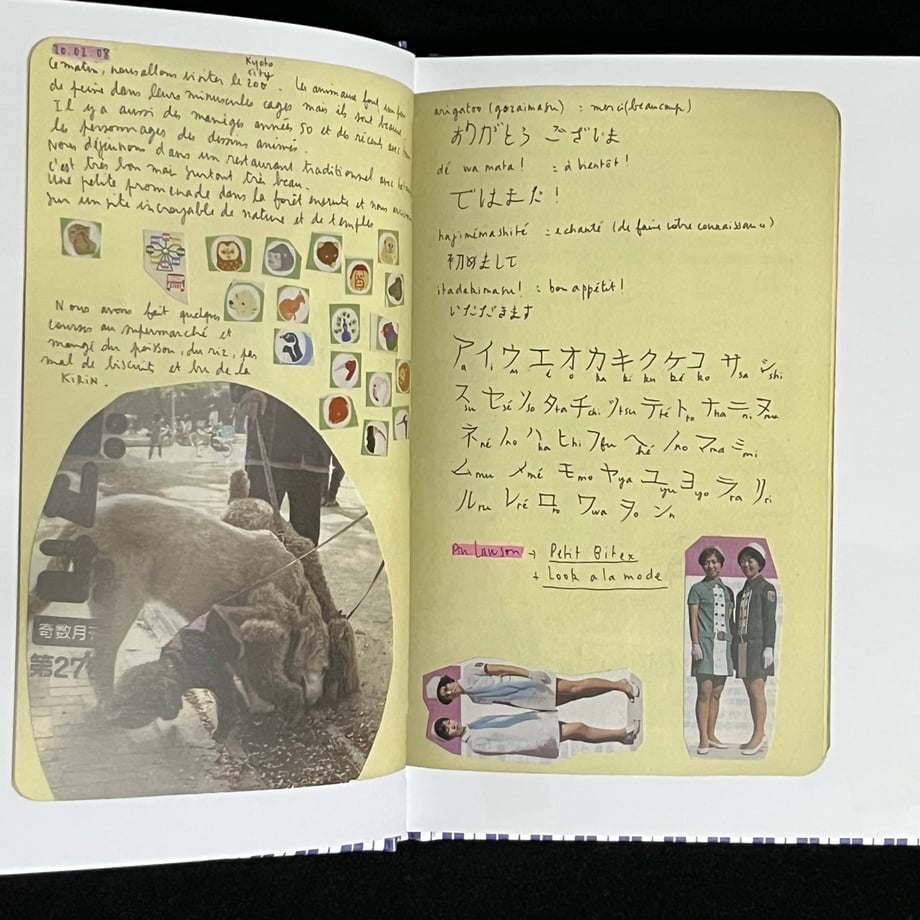 10.02.08
Kyoto
city
Ce matin, nous allons visiter le zoo. Les animaux font un peu
de peine dans leurs minuscules cages mais ils sont beaux.
Il y a aussi des manèges années 50 et des récents avec
les personnages des dessins animés.
Nous déjeunons dans un restaurant traditionnel avec
c'est très bon mais surtout très beau.
Une petite promenade dans la forêt ensuite et nous arrivons
sur un site incroyable de nature et de temples
Nous avons fait quelques
courses au supermarché et
mangé du poisson, du riz, pas
mal de biscuits et bu de la
KIRIN.
奇数月
第27
arigatoo (gozaimasu) : merci (beaucoup)
ありがとう ございま
dé wa mata! = à bientôt!
ではまた!
hajimémashité = enchanté (de faire votre connaissance)
初めまして
itadakimasu! = bon appétit!
いただだきます
ア a イ i ウ u エ é オ o カ ka キ ki ク ku ケ ké コ ko サ sa シ shi
ス su セ sé ソ so タ ta チ chi ツ tsu テ té ト to ナ na ニ ni ヌ nu
ネ né ノ no ハ ha ヒ hi フ fu ヘ hé ノ no マ ma ミ mi
ム mu メ mé モ mo ヤ ya ユ yu ヨ yo ラ ra リ ri
ル ru レ ré ロ ro ワ wa ヲ o ン n
Au Lawson → Petit Bitex
+ Look a la mode